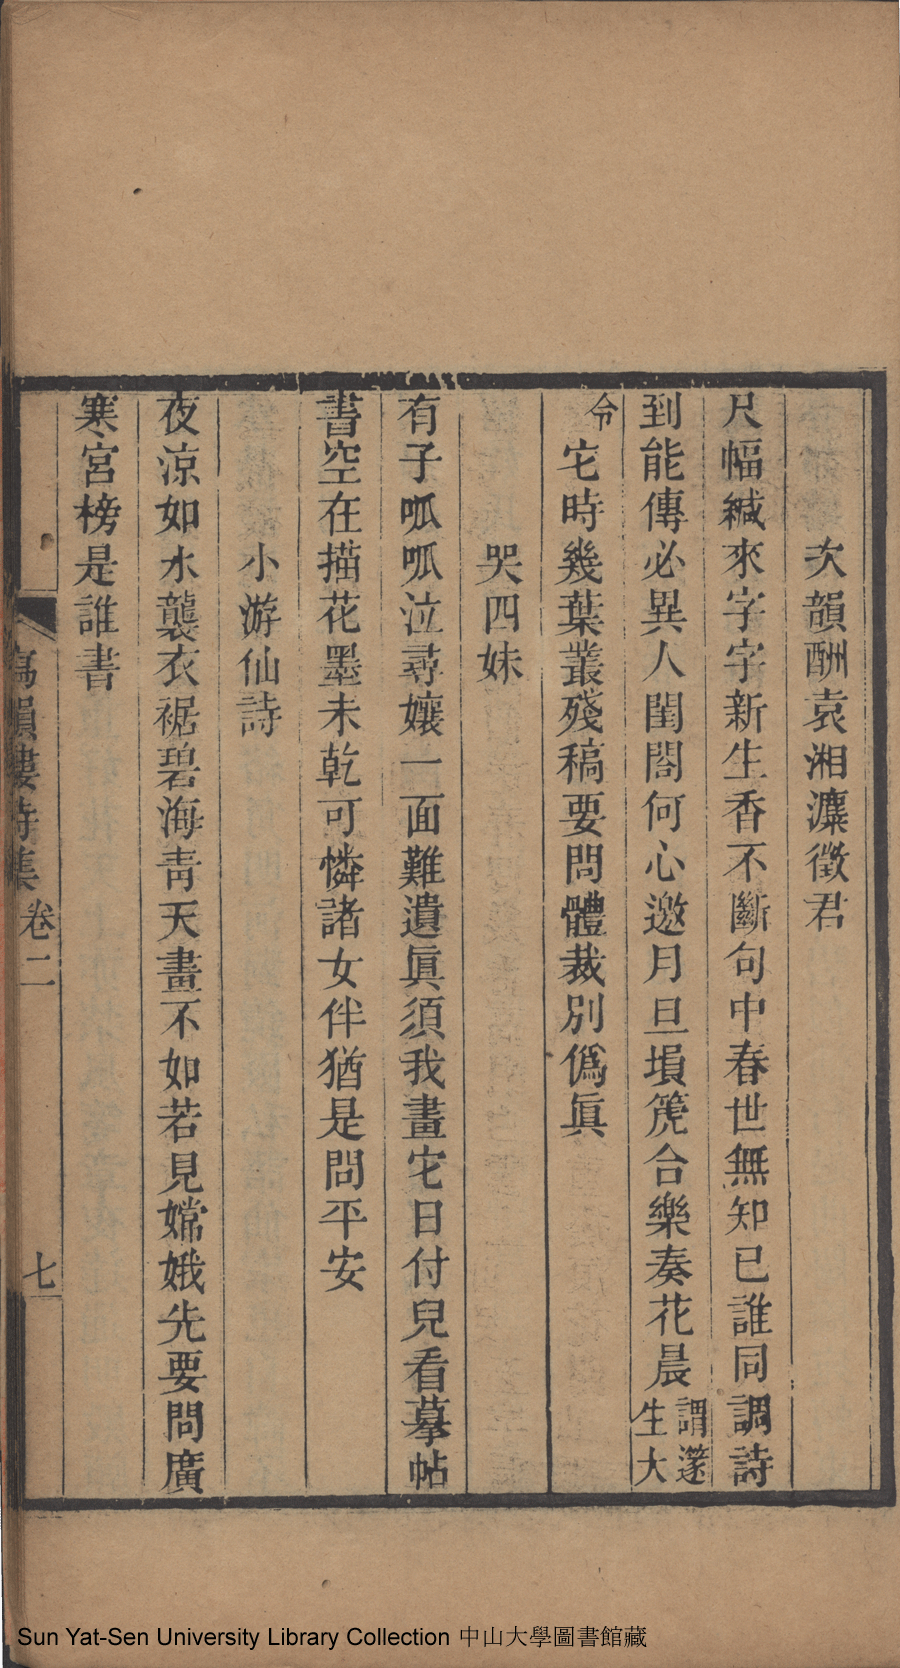 次韻酬袁湘濂徵君
尺幅緘來字字新生香不斷句中春世無知已誰同調詩
到能傳必異人閨閤何心邀月旦塤箎合樂奏花晨謂邃生大
令宅時幾葉叢殘稿要問體裁別僞眞
哭四妹
有子呱呱泣尋孃一面難遺眞須我畫宅日付兒看摹帖
書空在描花墨未乾可憐諸女伴猶是問平安
小游仙詩
夜涼如水襲衣裾碧海靑天畫不如若見嫦娥先要問廣
寒宮榜是誰書
寫韻樓詩集 卷二 七
Sun Yat-Sen University Library Collection 中山大學圖書館藏